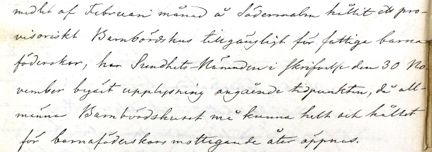 medlet af Februari månad å Södermalm hållit ett pro-
visoriskt Barnbördshus tillgängligt för fattiga barna
föderskor, har Sundhets-Nämnden i skrifvelse den 30 No-
vember begärt upplysning angående tidpunkten, då all-
männa Barnbördshuset må kunna helt och hållet
för barnaföderskors mottagande åter öppnas.